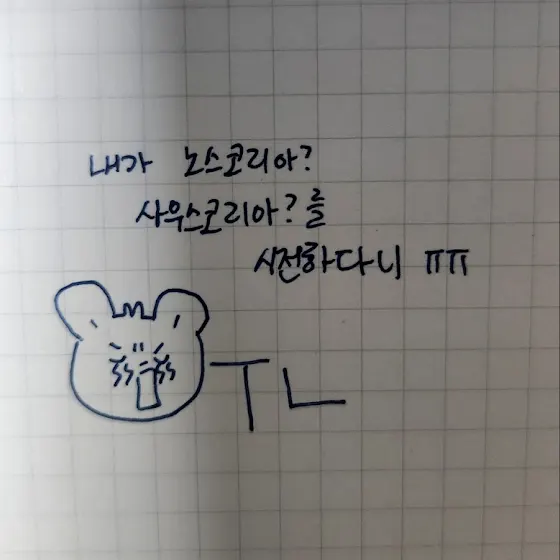 내가 노스코리아?
사우스코리아?를
시전하다니 ㅠㅠ
ㅜㄴ